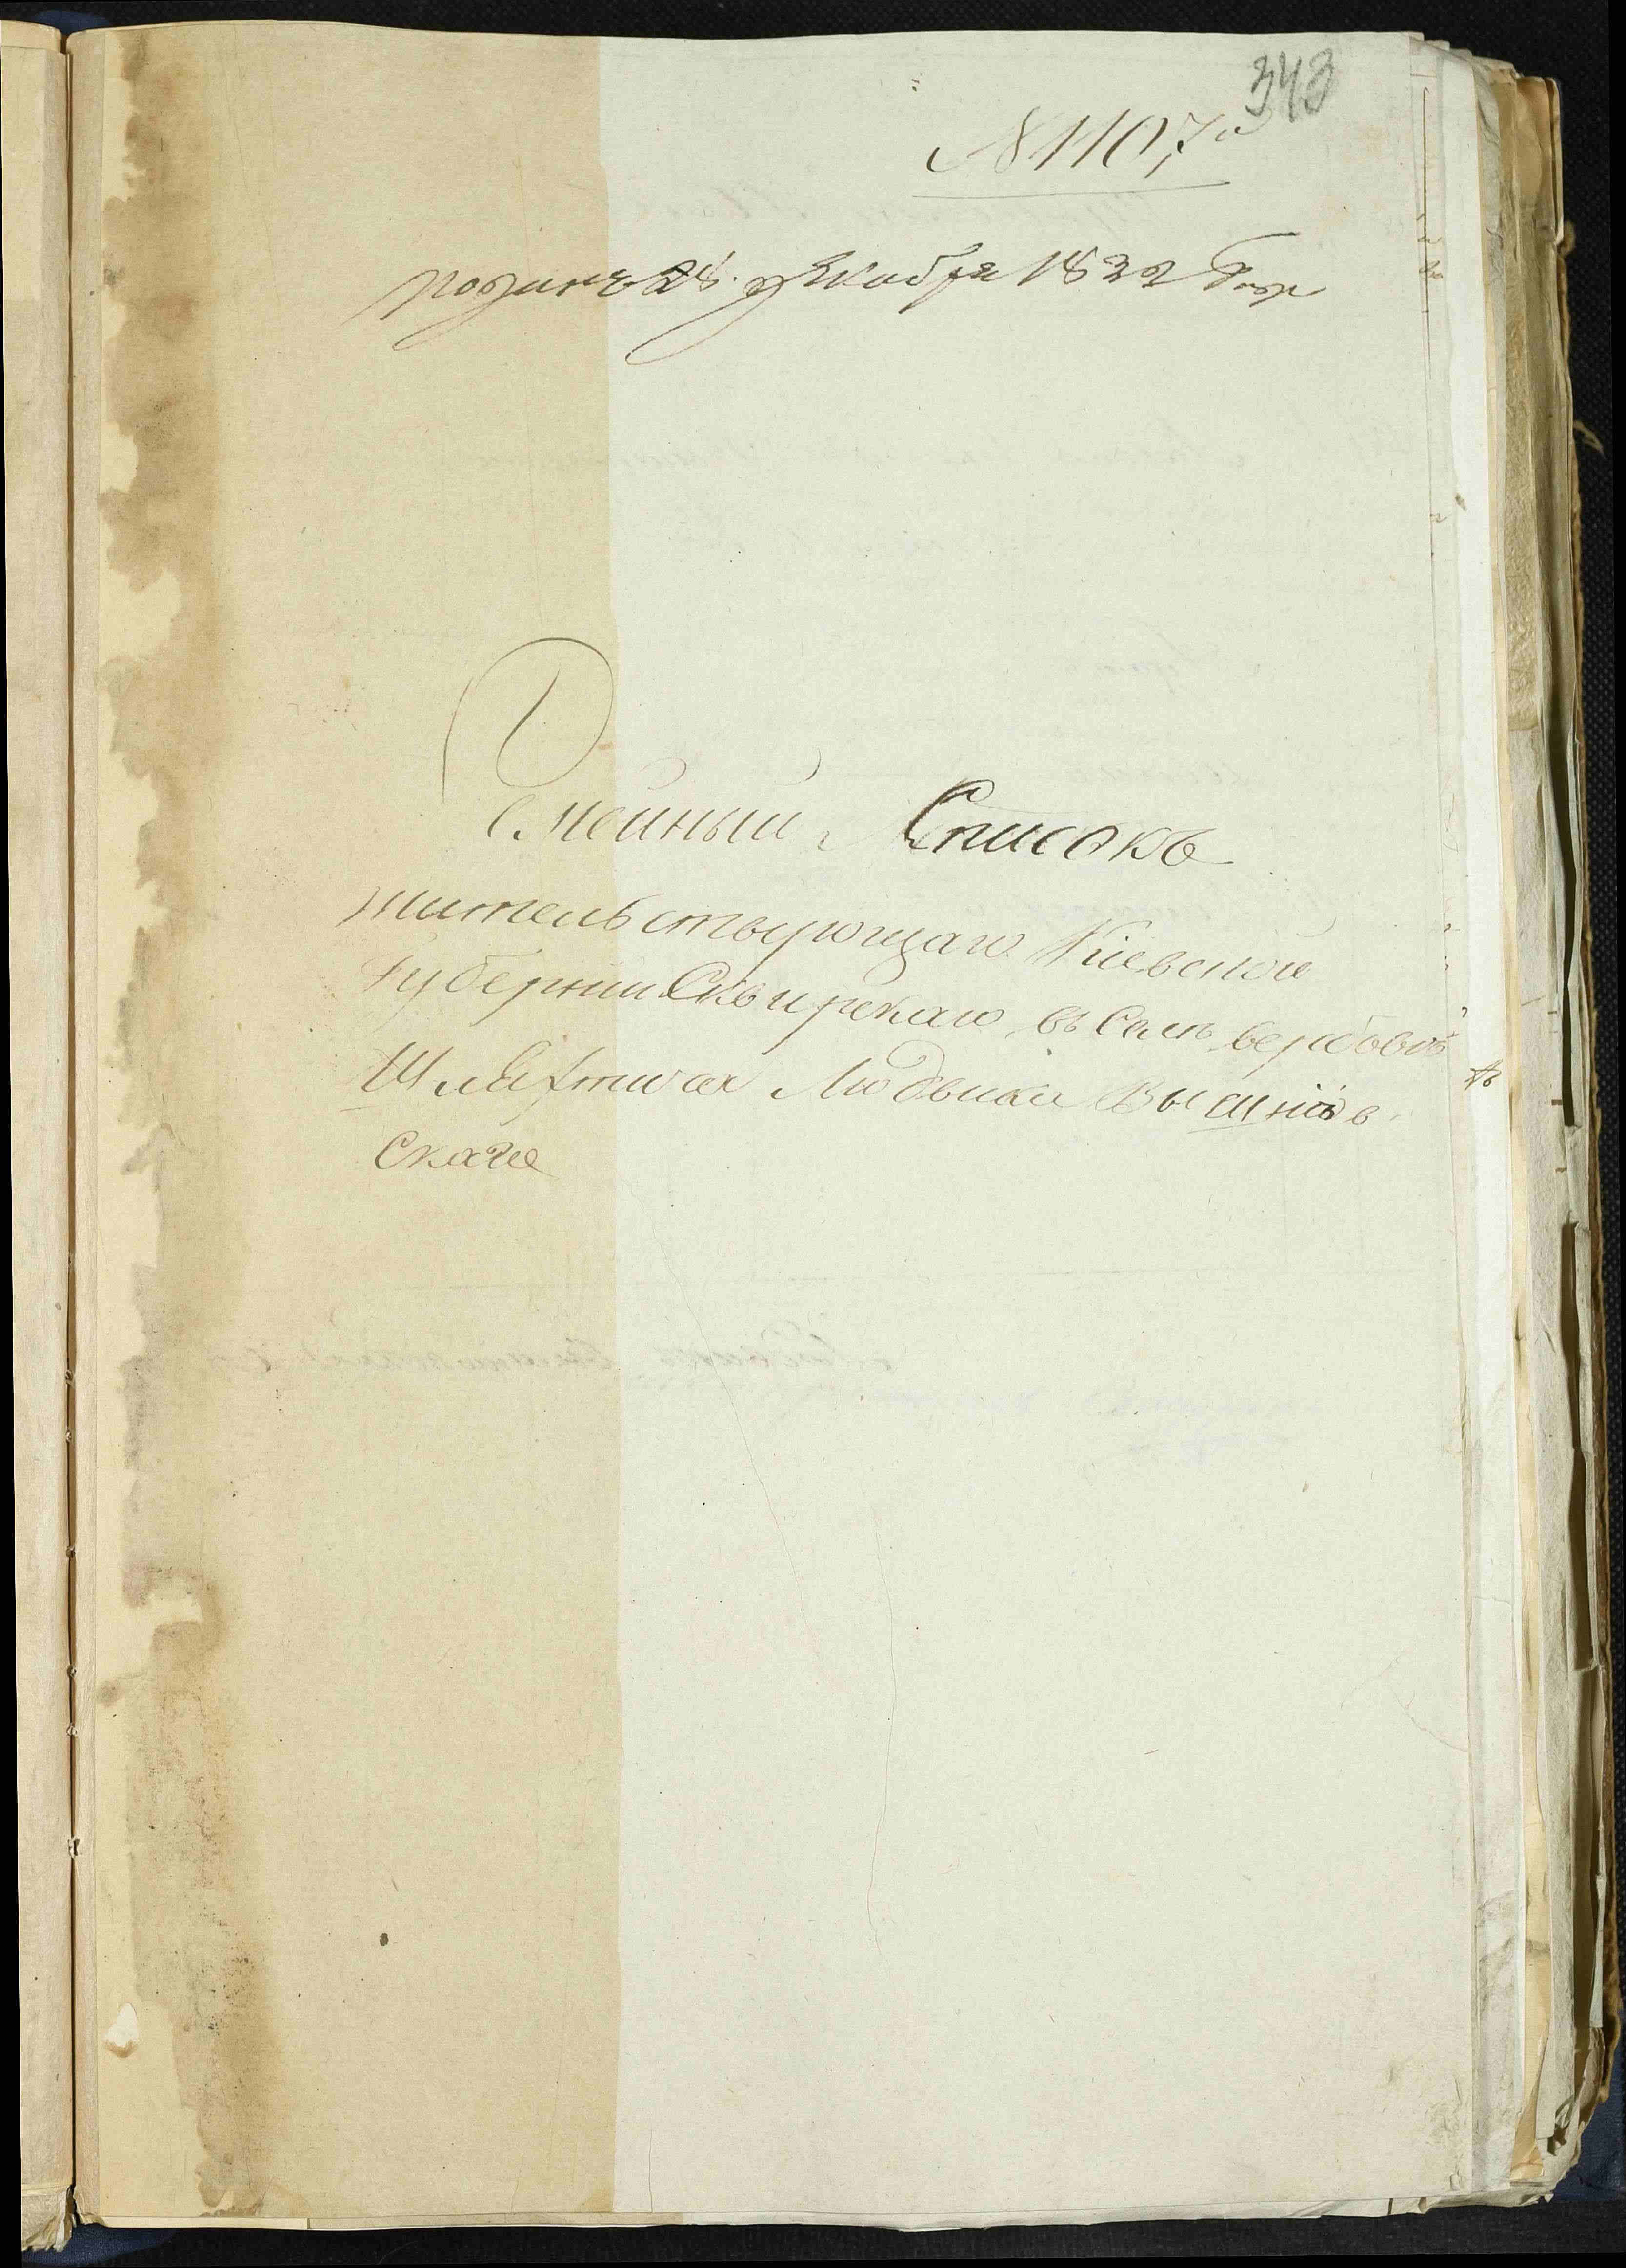 343
№ 1107й
подане 28. декабря 1832 года
Семейный Списокъ
жительствующаго Кіевской
Губерніи Сквирскаго въ Селѣ вербовой
Шляхтича Людвика Вышнѣв
скаго